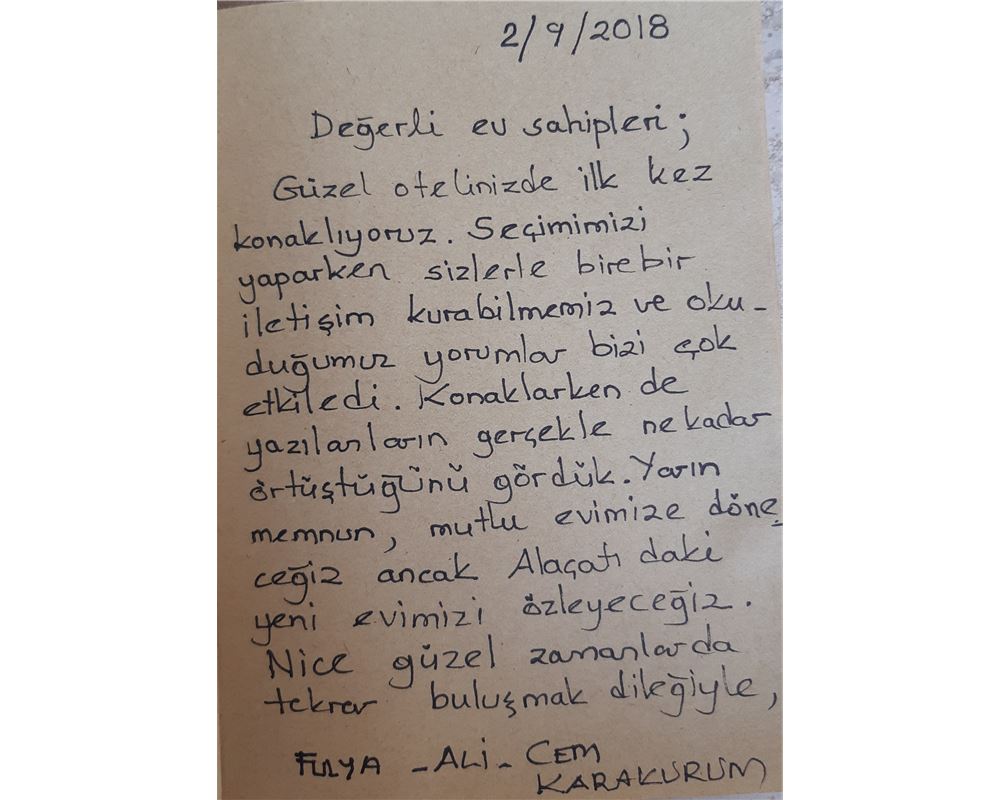 2/9/2018
Değerli ev sahipleri;
Güzel otelinizde ilk kez
konaklıyoruz. Seçimimizi
yaparken sizlerle birebir
iletişim kurabilmemiz ve oku-
duğumuz yorumlar bizi çok
etkiledi. Konaklarken de
yazılanların gerçekle nekadar
örtüştüğünü gördük. Yarın
memnun, mutlu evimize döne-
ceğiz ancak Alaçatı daki
yeni evimizi özleyeceğiz.
Nice güzel zamanlarda
tekrar buluşmak dileğiyle,
FULYA - ALİ - CEM
KARAKURUM